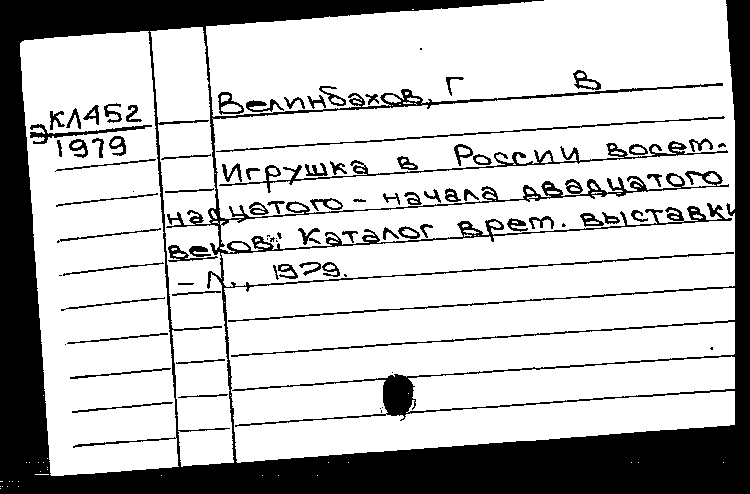 Велинбахов, Г В
КЛ452
Э
1979
Игрушка в России восем-
надцатого - начала двадцатого
веков: Каталог врем. выставки
- Л., 1979.